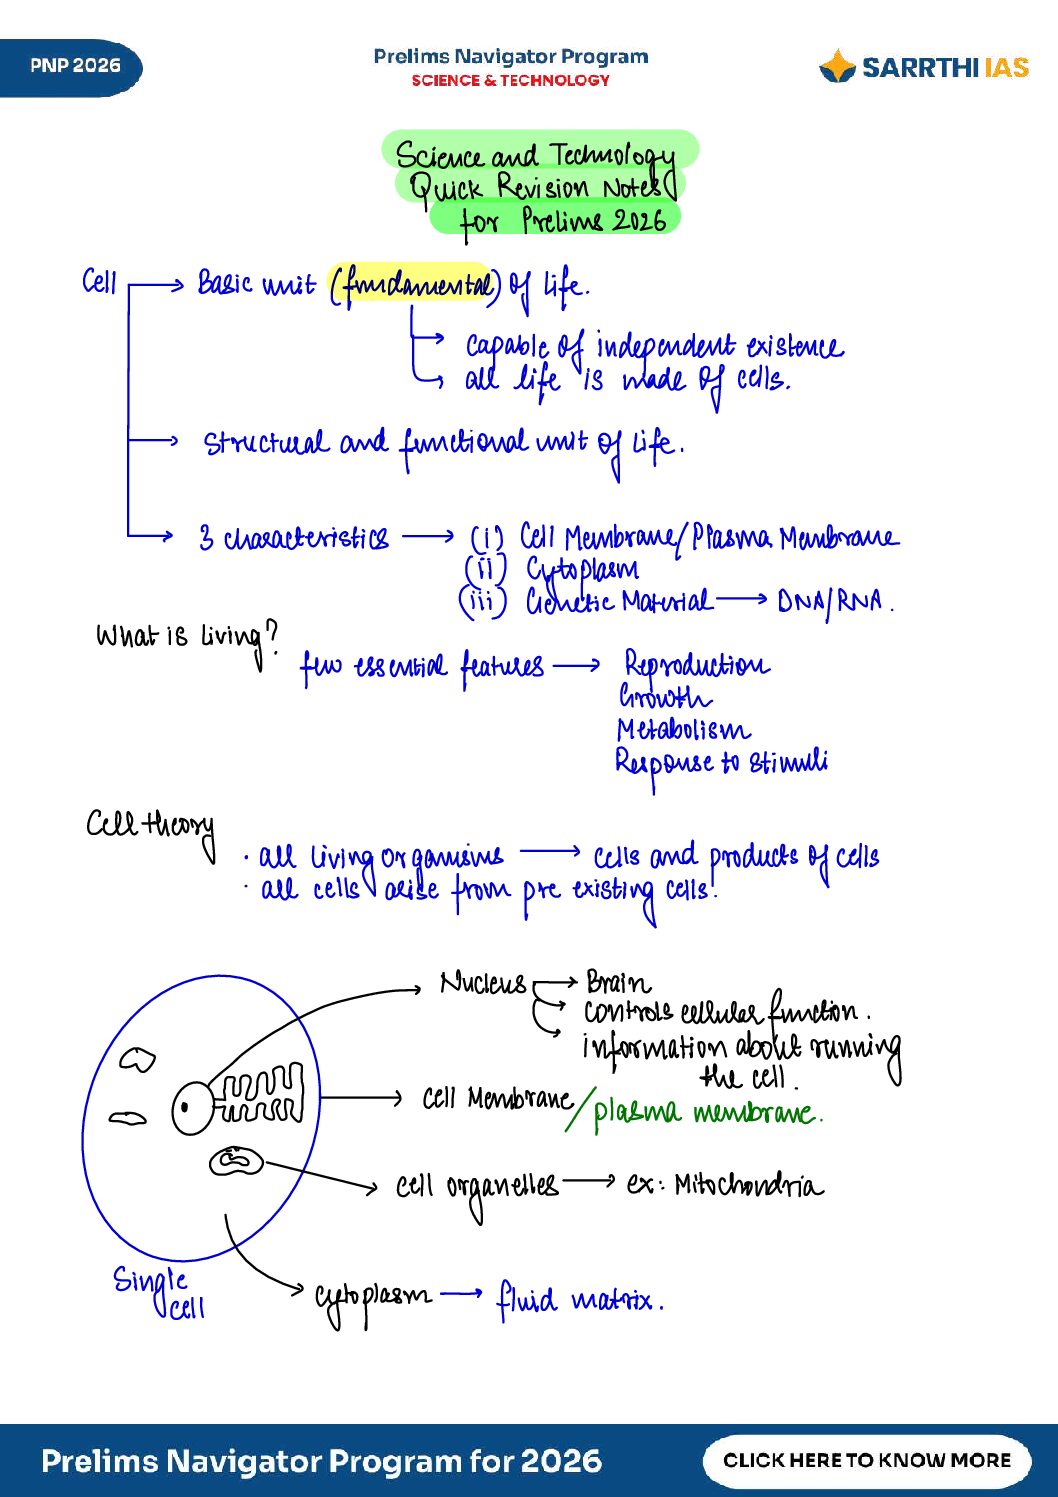 PNP 2026
Prelims Navigator Program
SCIENCE & TECHNOLOGY
SARRTHI IAS
Science and Technology
Quick Revision Notes
for Prelims 2026
Cell → Basic unit (fundamental) of life.
→ capable of independent existence
→ all life is made of cells.
→ structural and functional unit of life.
→ 3 characteristics → (i) Cell Membrane/Plasma Membrane
(ii) Cytoplasm
(iii) Genetic Material → DNA/RNA.
What is living?
few essential features → Reproduction
Growth
Metabolism
Response to stimuli
Cell theory
· all living organisms → cells and products of cells
· all cells arise from pre existing cells.
Nucleus → Brain
→ controls cellular function.
→ information about running
the cell.
cell Membrane/plasma membrane.
cell organelles → ex: Mitochondria
Single
cell
cytoplasm → fluid matrix.
Prelims Navigator Program for 2026
CLICK HERE TO KNOW MORE